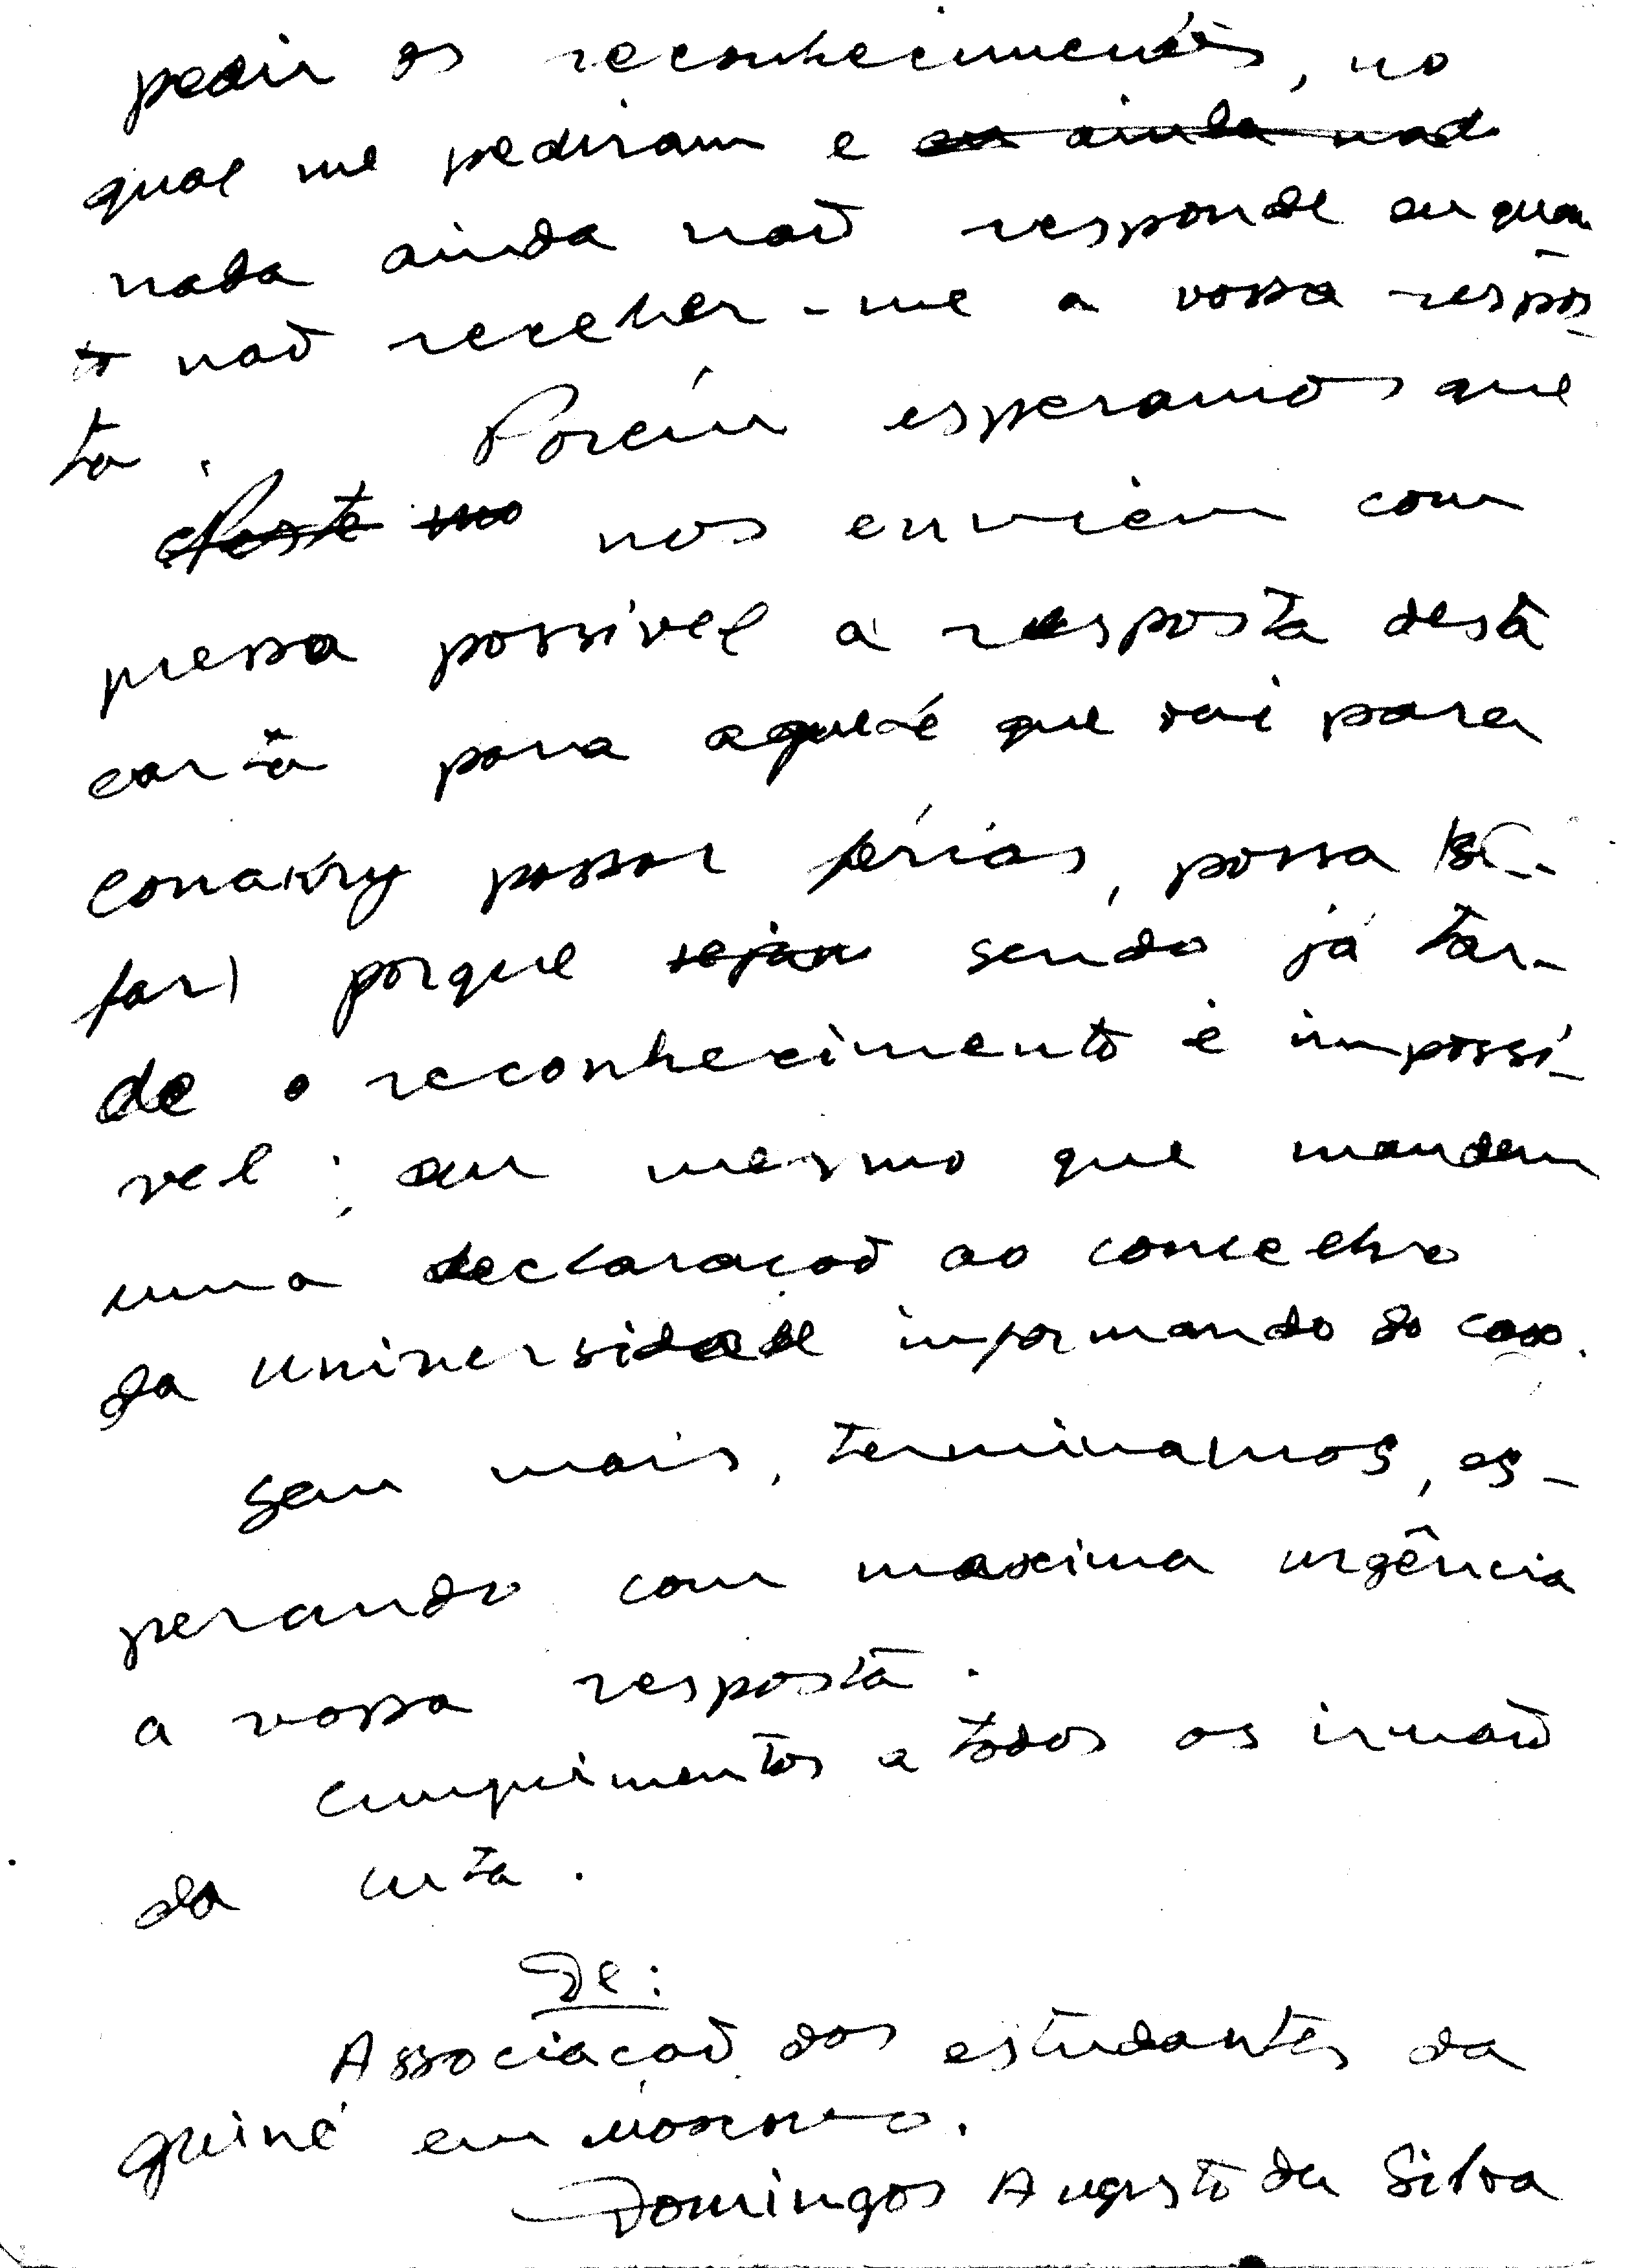 pedir os reconhecimentos, no
qual me pediram e eu ainda nad
nada ainda naõ responde enquan
to naõ receber-me a vossa respos-
ta. Porém esperamos que
neste mo nos enviem com
pressa possivel a resposta desta
carta para aquele que vai para
Conakry passar férias, possa
porque sejam sendo já tar-
de o reconhecimento é impossi-
vel; ou mesmo que mandem
uma declaraçaõ ao concelho
da Universidade informando do caso.
Sem mais, terminamos, es-
perando com maxima urgência
a vossa resposta.
Cumprimentos a todos os irmaõ
da luta.
De:
Associaçaõ dos estudantes da
Guiné em Moscovo.
Domingos Augusto da Silva